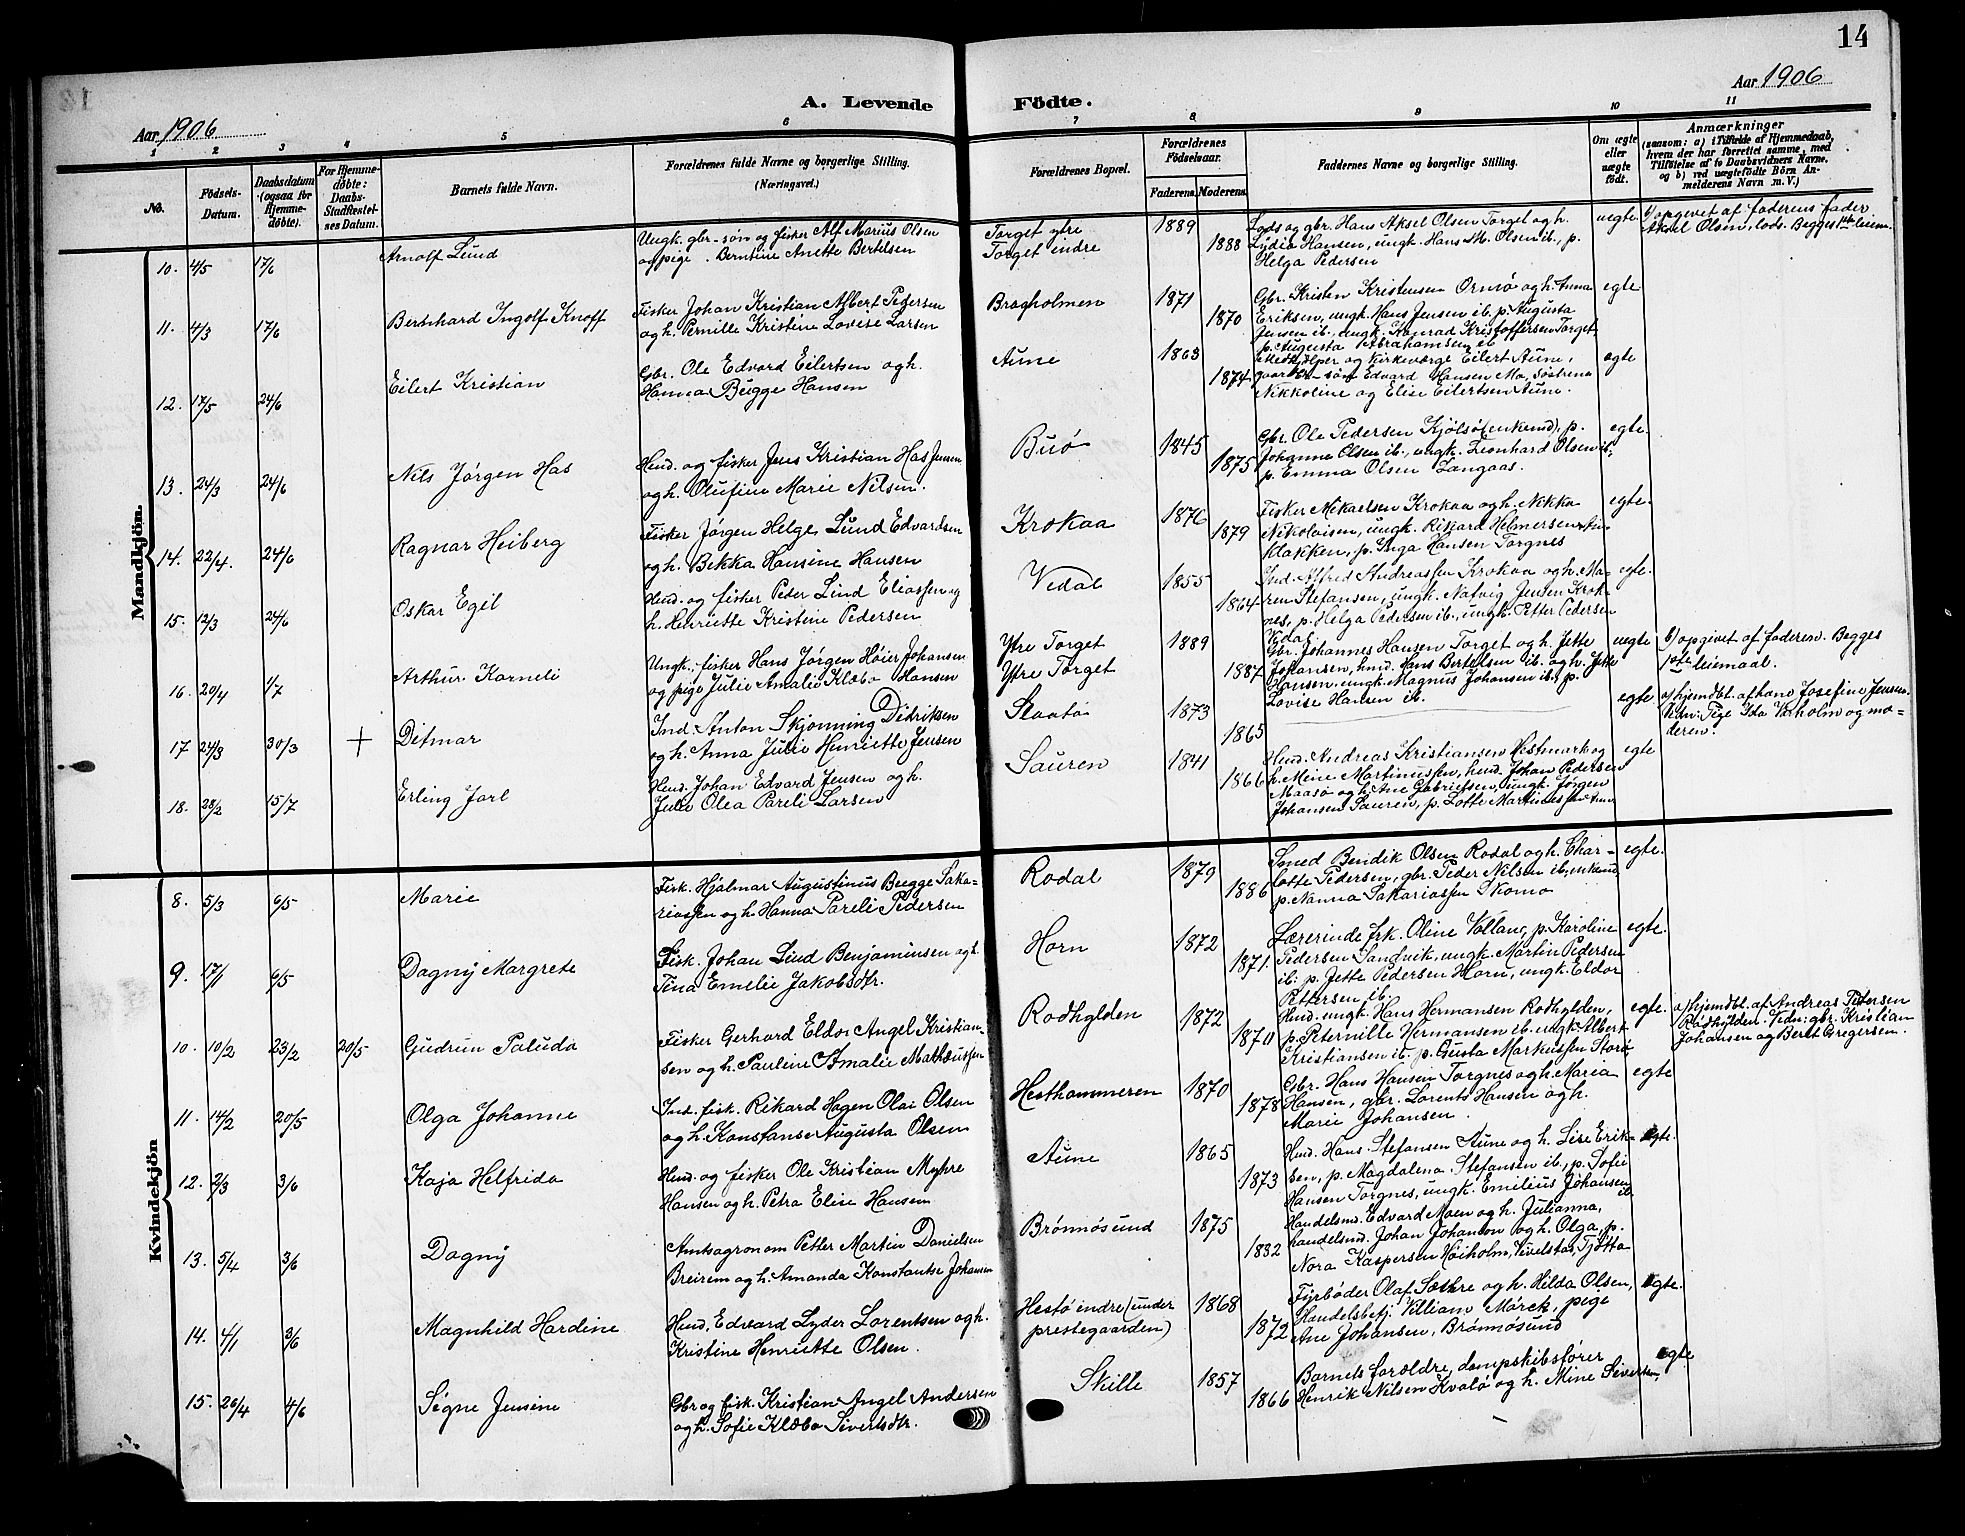 14
Aar 1906
A. Levende Födte.
Aar 1906
1 2 3 4 5 6 7 8 9 10 11
No.
Födsels-Datum.
Daabsdatum (ogsaa for Hjemmedöbte).
For Hjemmedöbte: Daabs-Stadfæstelses Datum.
Barnets fulde Navn.
Forældrenes fulde Navne og borgerlige Stilling. (Næringsvei.)
Forældrenes Bopæl.
Forældrenes Födselsaar.
Faderens. Moderens.
Faddernes Navne og borgerlige Stilling.
Om ægte eller uægte födt.
Anmærkninger
(saasom: a) i Tilfælde af Hjemmedaab, hvem der har forrettet samme, med Tilföielse af to Daabsvidners Navne, og b) ved uægtefödte Börn Anmelderens Navn m. V.)
Mandkjön.
10. 4/5 17/6 Arnolf Lund
Ungk. gbr-søn og fisker Alf Marius Olsen
og pige Berntine Anette Bertilsen
Torget ytre
Torget indre
1889
1888
Lods og gbr. Hans Aksel Olsen Torget og h.
Lydia Hansen, ungk. Hans M. Olsen ib., p.
Helga Pedersen
uegte
b) opgivet af faderens fader
Aksel Olsen, lods. Begges 1ste leierm.
11. 4/3 17/6 Bernhard Ingolf Knoff
Fisker Johan Kristian Albert Pedersen
og h. Pernille Kristine Lovise Larsen
Bragholmen
1871
1870
Gbr. Kristen Kristensen Ormø og h. Anna
Eriksen, ungk. Hans Jensen ib., p. Augusta
Jensen ib., ungk. Konrad Kristoffersen Torget
p. Augusta Abrahamsen ib
egte
12. 17/5 24/6 Eilert Kristian
Gbr. Ole Edvard Eilertsen og h.
Hanna Bugge Hansen
Aune
1863
1874
og kirkeværge Eilert Aune,
søn Edvard Hansen Mo, søstrene
Nikkoline og Elise Eilertsen Aune.
egte
13. 24/3 24/6 Nils Jørgen Has
Husd. og fisker Jens Kristian Has Jensen
og h. Olufine Marie Nilsen.
Buø
1845
1875
Gbr. Ole Pedersen Kjølsø (enkemd), p.
Johanne Olsen ib., ungk. Leonhard Olsen ib.,
p. Emma Olsen Langaas.
egte.
14. 22/4. 24/6 Ragnar Heiberg
Fisker Jørgen Helge Lund Edvardsen
og h. Bekka Hansine Hansen
Krokaa
1876
1879
Fisker Mikaelsen Krokaa og h. Nikka
Nikolaisen, ungk. Rikard Helmersen
Klakken, p. Inga Hansen Torgnes
egte.
15. 12/3 24/6 Oskar Egil
Husd. og fisker Peder Lind Eliassen og
h. Henriette Kristine Pedersen
Vedal
1855
1864
Ind. Alfred Andreassen Krokaa og h. Ma-
ren Stefansen, ungk. Nafvig Jensen Krok-
nes, p. Helga Pedersen ib., ungk. Petter Pedersen
Vedal
egte.
16. 20/4 1/7 Arthur Korneli
Ungk., fisker Hans Jørgen Høier Johansen
og pige Julie Amalie Klæbo Hansen
Ytre Torget
Ytre Torget
1889
1887
Gbr. Johannes Hansen Torget og h. Jette
Johansen, husd. Hans Bertelsen ib. og h. Jette
Hansen, ungk. Magnus Johansen ib., p.
Lovise Hansen ib.
uegte
b) opgivet af faderen. Begges
1ste leiemaal.
17 24/3 30/3 + Ditmar
Ind. Anton Skjønning Didriksen
og h. Anna Julie Henriette Jensen
Slaatø
1873
1865
egte
a) hjemdbt. af kone Josefine Jensen.
Vidn: Pige Ida Vaholm og mo-
deren.
18. 28/2 15/7 Erling Jarl
Husd. Johan Edvard Jensen og h.
Julie Olea Pareli Larsen
Sauren
1841
1866
Husd. Andreas Kristiansen Hestmark og
h. Mine Martinussen, husd. Johan Pedersen
Maasø og h. Ane Gabrielsen, ungk. Jørgen
Johansen Sauren, p. Lotte Martinussen Aune
egte
Kvindekjön
8. 5/3 6/5 Marie
Fisk. Hjalmar Augustinus Bugge Saka-
riassen og h. Hanna Pareli Pedersen
Rodal
1879
1886
Smed Bendik Olsen Rodal og h. Char-
lotte Pedersen, gbr. Peder Nilsen ib., enkemd
p. Nanna Sakariassen Skomo
egte.
9. 17/1 6/5 Dagny Margrete
Fisk. Johan Lind Benjaminsen og h.
Tina Emelie Jakobsdtr.
Horn
1872
1871.
Lærerinde frk. Oline Vollan, p. Karoline
Pedersen Sandvik, ungk. Martin Pedersen
ib. p. Jette Pedersen Horn, ungk. Eldor
Pettersen ib.
egte.
10. 10/2 23/2 20/5 Gudrun Paluda
Fisker Gerhard Eldor Angel Kristian-
sen og h. Pauline Amalie Mathæussen
Rodhylden
1872
1870
Husd. ungk. Hans Hermansen Rodhylden,
p. Peternille Hermansen ib. ungk. Albert
Kristiansen ib. p. Gusta Markussen Storø
egte.
a) hjemdbt. af Andreas Petersen
Rødhylden. Vidn: gbr. Kristian
Johansen og Beret Gregersen.
11. 14/2 20/5 Olga Johanne
Ind. fisk. Rikard Hagen Olai Olsen
og h. Konstanse Augusta Olsen
Hesthammeren
1870
1878
Gbr. Hans Hansen Torgnes og h. Maria
Hansen, gbr. Lorents Hansen og h.
Marie Johansen.
egte
12. 2/3 3/6 Kaja Helfrida
Husd. og fisker Ole Kristian Myhre
Hansen og h. Petra Elise Hansen
Aune
1865
1873
Husd. Hans Stefansen Aune og h. Lise Erik-
sen, p. Magdalena Stefansen ib., p. Sofie
Hansen Torgnes, ungk. Emilius Johansen
ib.
egte.
13. 5/4 3/6 Dagny
Amtsagronom Petter Martin Danielsen
Breirem og h. Amanda Konstantse Johansen
Brønnøsund
1875
1882
Handelsmd. Edvard Moen og h. Julianna,
handelsmd. Johan Johanson og h. Olga, p.
Nora Kaspersen Høiholm, Vivelstad, Tjøtta
14. 4/1 3/6 Magnhild Hardine
Husd. Edvard Lyder Lorentsen og h.
Kristine Henriette Olsen.
Hestø indre (under
prestegaarden)
1868
1872
Fyrbøder Olaf Sæthre og h. Hilda Olsen,
Handelsbetj. Villiam Mørck, pige
Ane Johansen, Brønnøsund
egte.
15. 26/4 4/6 Signe Jensine
Gbr og fisk. Kristian Angel Andersen
og h. Sofie Klæbo Sivertsdtr.
Skille
1857
1866
Barnets foreldre, dampskibsfører
Henrik Nilsen Kvalø og h. Mine Sivertsen,
egte